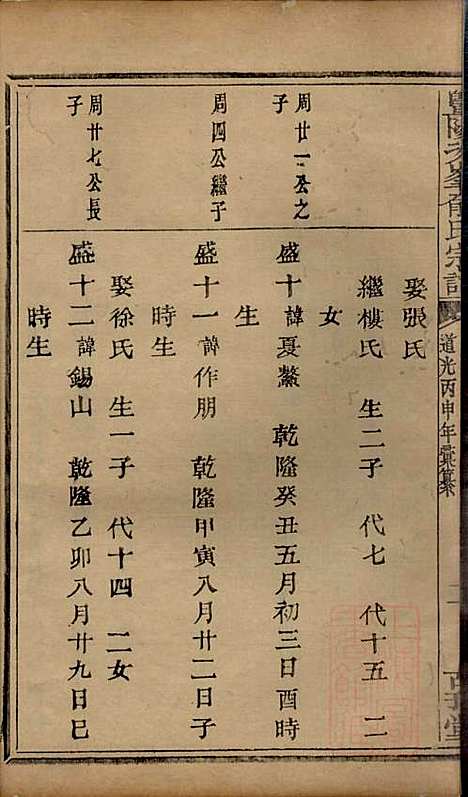 道光丙申年彙纂
娶張氏
繼樓氏 生二子 代七 代十五 二
女
周廿一公之
子
盛十諱夏鰲 乾隆癸丑五月初三日酉時
生
周四公繼子
盛十一諱作朋 乾隆甲寅八月廿二日子
時生
娶徐氏 生一子 代十四 二女
周廿七公長
子
盛十二諱錫山 乾隆乙卯八月廿九日巳
時生